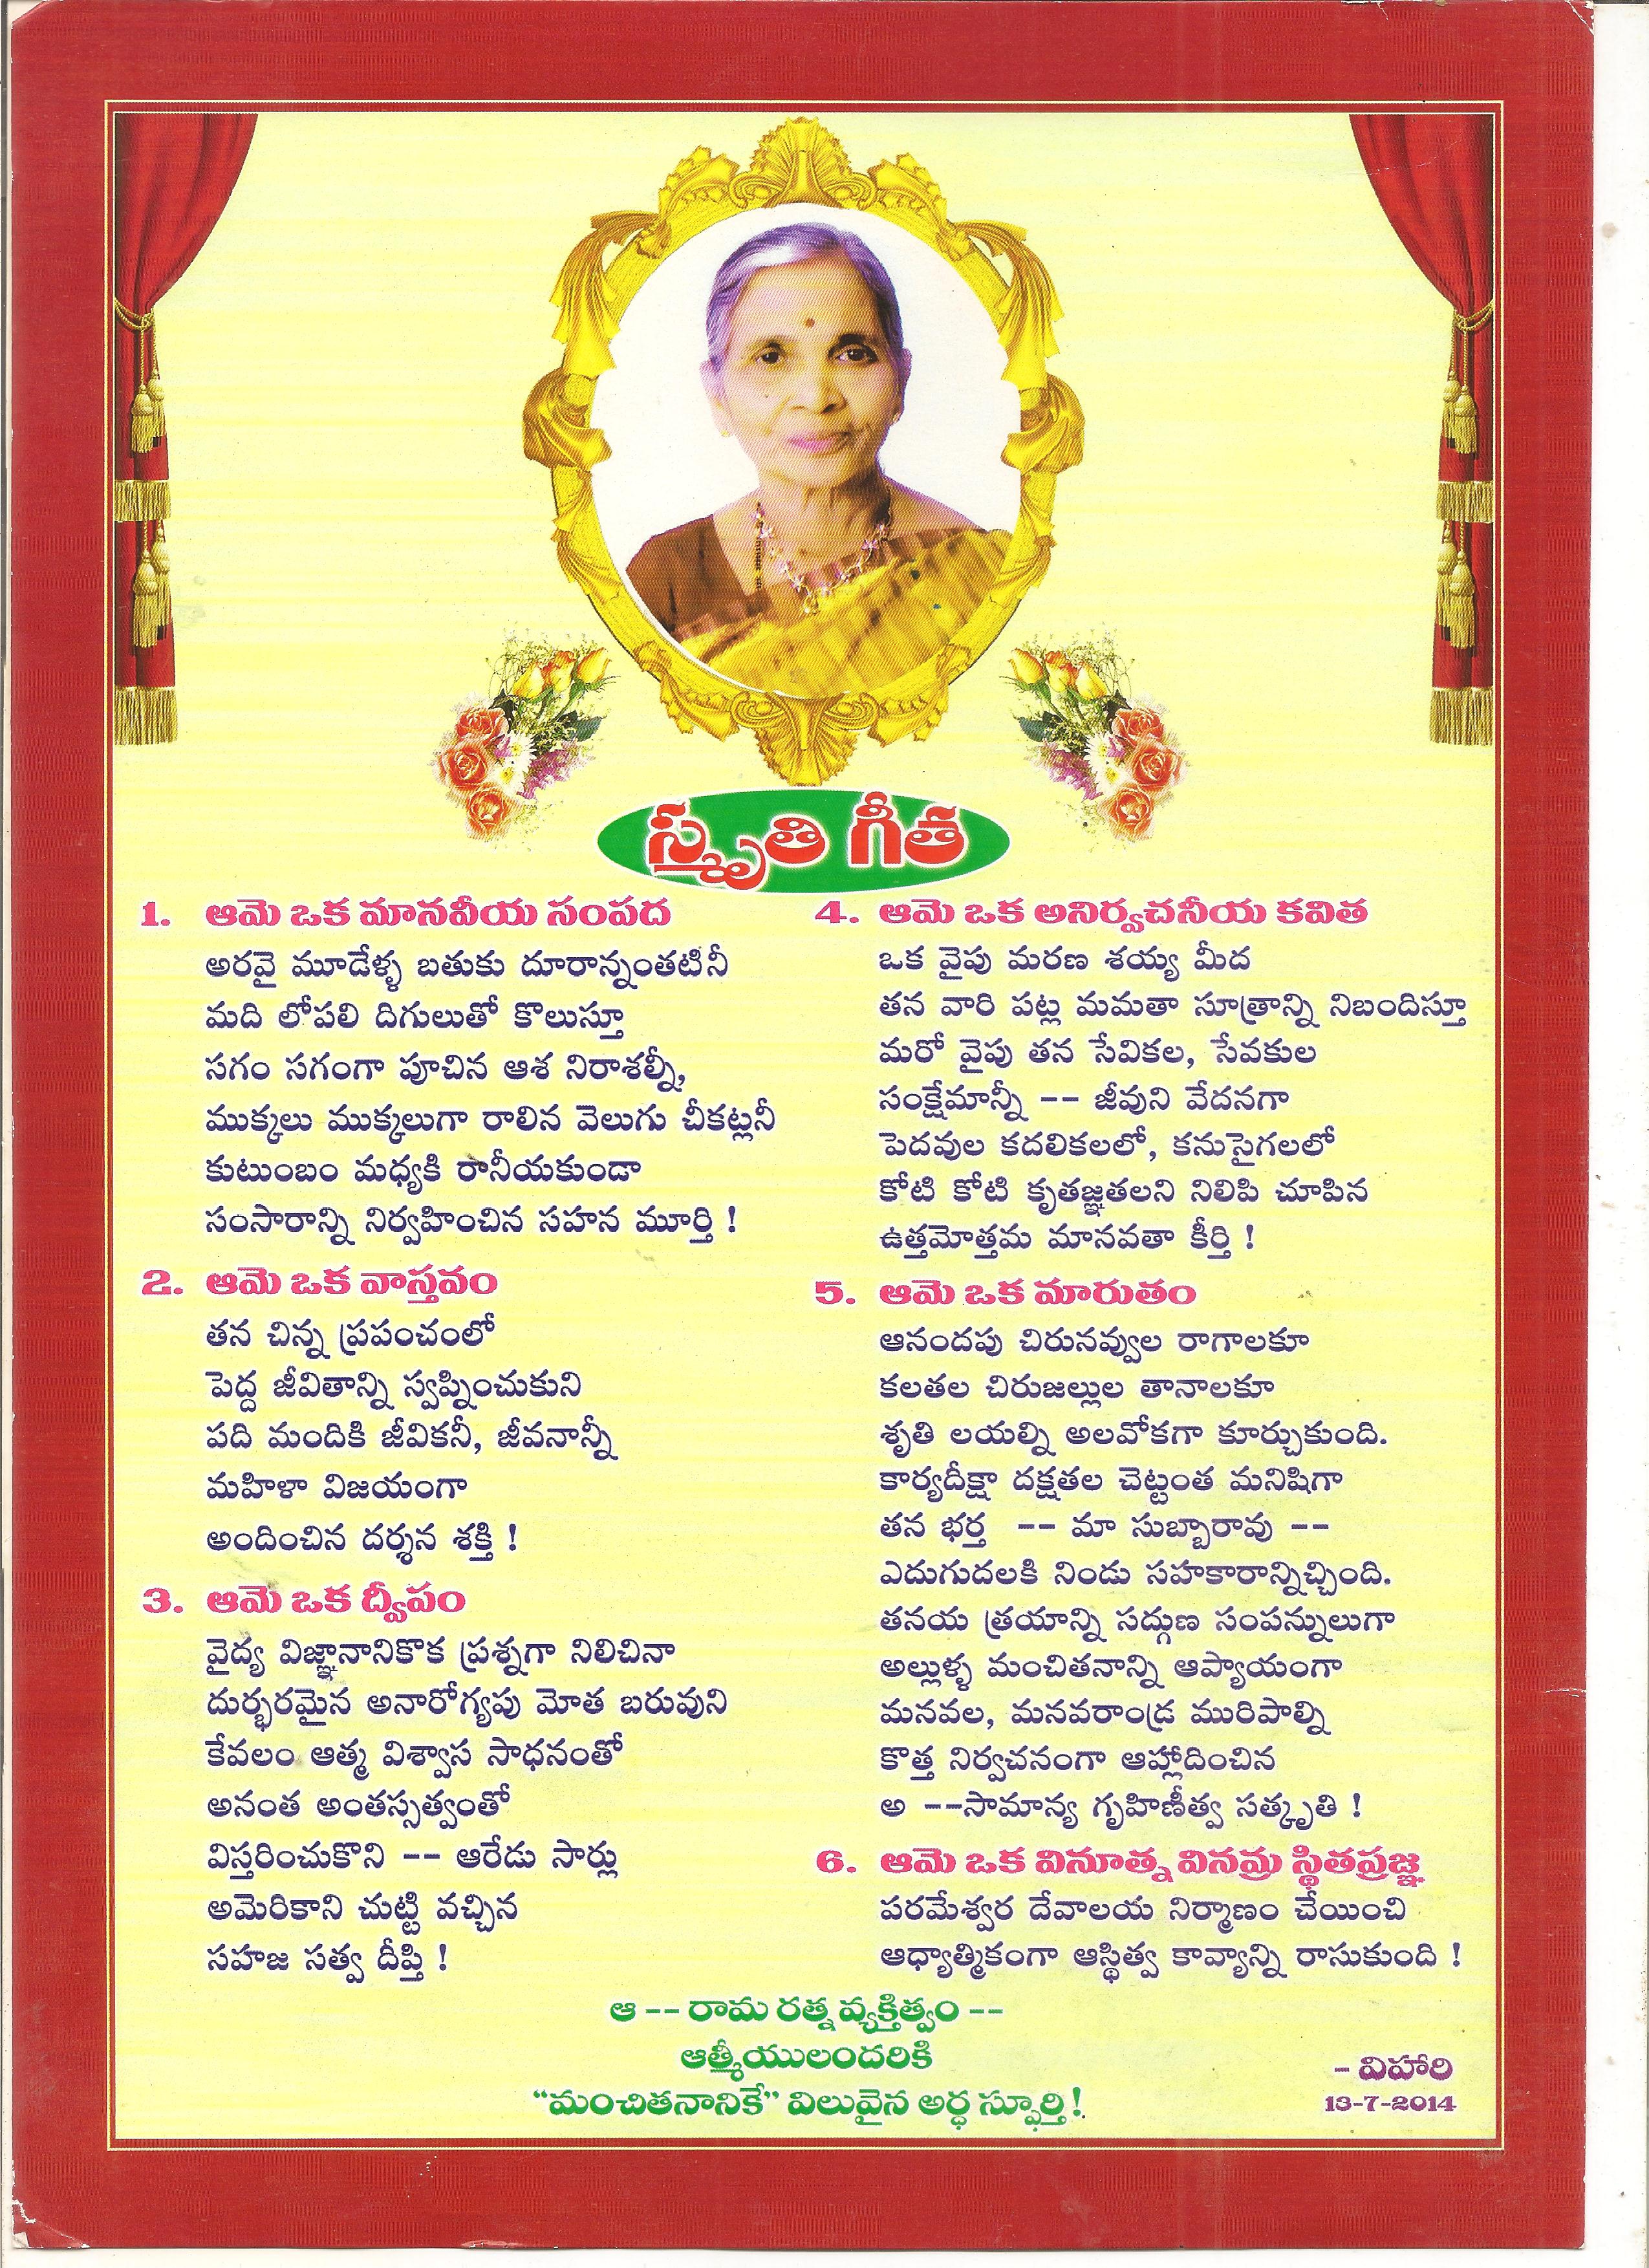 స్మృతి గీత
1. ఆమె ఒక మానవీయ సంపద
అరవై మూడేళ్ళ బతుకు దూరాన్నంతటినీ
మది లోపలి దిగులుతో కొలుస్తూ
సగం సగంగా పూచిన ఆశ నిరాశల్నీ,
ముక్కలు ముక్కలుగా రాలిన వెలుగు చీకట్లనీ
కుటుంబం మధ్యకి రానీయకుండా
సంసారాన్ని నిర్వహించిన సహన మూర్తి !
2. ఆమె ఒక వాస్తవం
తన చిన్న ప్రపంచంలో
పెద్ద జీవితాన్ని స్వప్నించుకుని
పది మందికి జీవికనీ, జీవనాన్నీ
మహిళా విజయంగా
అందించిన దర్శన శక్తి !
3. ఆమె ఒక ద్వీపం
వైద్య విజ్ఞానానికొక ప్రశ్నగా నిలిచినా
దుర్భరమైన అనారోగ్యపు మోత బరువుని
కేవలం ఆత్మ విశ్వాస సాధనంతో
అనంత అంతస్సత్వంతో
విస్తరించుకొని -- ఆరేడు సార్లు
అమెరికాని చుట్టి వచ్చిన
సహజ సత్వ దీప్తి !
4. ఆమె ఒక అనిర్వచనీయ కవిత
ఒక వైపు మరణ శయ్య మీద
తన వారి పట్ల మమతా సూత్రాన్ని నిబందిస్తూ
మరో వైపు తన సేవికల, సేవకుల
సంక్షేమాన్నీ -- జీవుని వేదనగా
పెదవుల కదలికలలో, కనుసైగలలో
కోటి కోటి కృతజ్ఞతలని నిలిపి చూపిన
ఉత్తమోత్తమ మానవతా కీర్తి !
5. ఆమె ఒక మారుతం
ఆనందపు చిరునవ్వుల రాగాలకూ
కలతల చిరుజల్లుల తానాలకూ
శృతి లయల్ని అలవోకగా కూర్చుకుంది.
కార్యదీక్షా దక్షతల చెట్టంత మనిషిగా
తన భర్త -- మా సుబ్బారావు --
ఎదుగుదలకి నిండు సహకారాన్నిచ్చింది.
తనయ త్రయాన్ని సద్గుణ సంపన్నులుగా
అల్లుళ్ళ మంచితనాన్ని ఆప్యాయంగా
మనవల, మనవరాండ్ర మురిపాల్ని
కొత్త నిర్వచనంగా ఆహ్లాదించిన
అ --సామాన్య గృహిణీత్వ సత్కృతి !
6. ఆమె ఒక వినూత్న వినమ్ర స్థితప్రజ్ఞ
పరమేశ్వర దేవాలయ నిర్మాణం చేయించి
ఆధ్యాత్మికంగా ఆస్థిత్వ కావ్యాన్ని రాసుకుంది !
ఆ -- రామ రత్న వ్యక్తిత్వం --
ఆత్మీయులందరికి
“మంచితనానికే” విలువైన అర్ధ స్ఫూర్తి!
- విహారి
13-7-2014